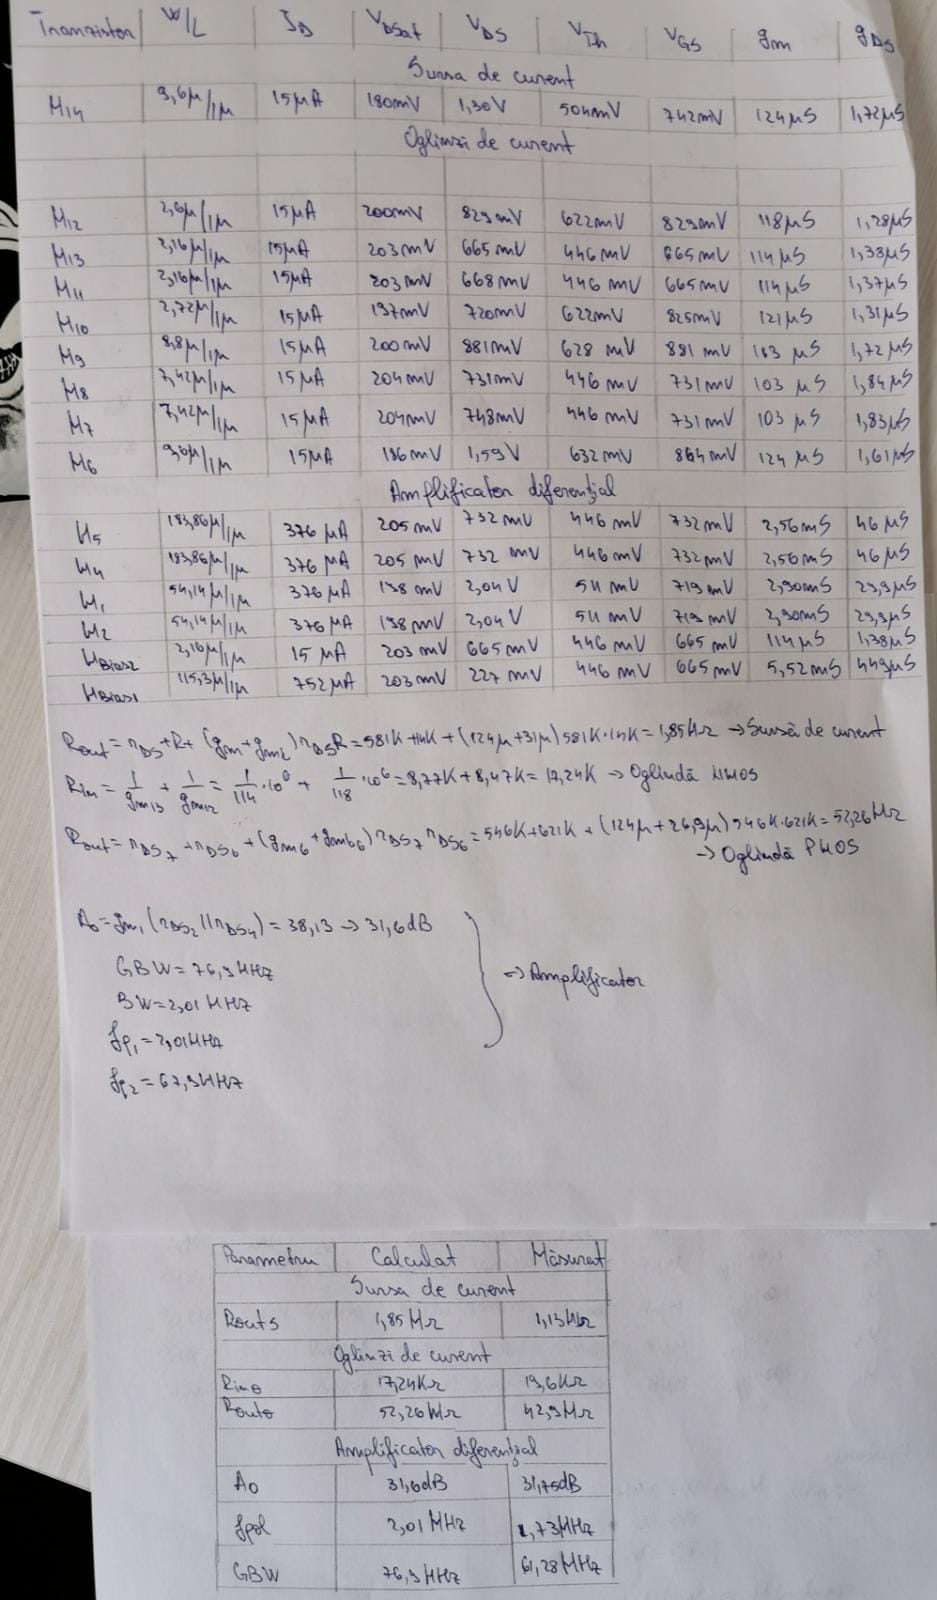 Tranzistor W/L ID VDSat VDS VTh VGS gm gDS
Sursa de curent
M14 9,6µ/1µ 15µA 180mV 1,30V 504mV 742mV 124µS 1,72µS
Oglinzi de curent
M12 2,6µ/1µ 15µA 200mV 829mV 622mV 829mV 118µS 1,28µS
M13 2,16µ/1µ 15µA 203mV 665mV 446mV 665mV 114µS 1,38µS
M11 2,16µ/1µ 15µA 203mV 668mV 446mV 665mV 114µS 1,37µS
M10 2,72µ/1µ 15µA 197mV 720mV 622mV 825mV 121µS 1,31µS
M9 8,8µ/1µ 15µA 200mV 881mV 628mV 881mV 113µS 1,72µS
M8 7,42µ/1µ 15µA 204mV 731mV 446mV 731mV 103µS 1,84µS
M7 7,42µ/1µ 15µA 204mV 748mV 446mV 731mV 103µS 1,83µS
M6 9,6µ/1µ 15µA 186mV 1,59V 632mV 864mV 124µS 1,61µS
Amplificator diferenţial
M5 183,86µ/1µ 376µA 205mV 732mV 446mV 732mV 2,56mS 46µS
M4 183,86µ/1µ 376µA 205mV 732mV 446mV 732mV 2,56mS 46µS
M1 54,14µ/1µ 376µA 198mV 2,04V 511mV 719mV 2,90mS 29,9µS
M2 54,14µ/1µ 376µA 198mV 2,04V 511mV 719mV 2,90mS 29,9µS
MBias2 2,16µ/1µ 15µA 203mV 665mV 446mV 665mV 114µS 1,38µS
MBias1 115,3µ/1µ 752µA 203mV 227mV 446mV 665mV 5,52mS 449µS
Rout = rDS+R+(gm+gmb)rDSR = 581K+14K+(124µ+31µ)581K·14K = 1,85MΩ → Sursă de curent
Rin = 1/gm13 + 1/gm12 = 1/114·10⁶ + 1/118·10⁶ = 8,77K+8,47K = 17,24K → Oglindă NMOS
Rout = rDS7+rDS6+(gm6+gmb6)rDS7rDS6 = 546K+621K+(124µ+26,9µ)546K·621K = 52,26MΩ
→ Oglindă PMOS
A0 = gm1(rDS2||rDS4) = 38,13 → 31,6dB
GBW = 76,9MHz
BW = 2,01MHz → Amplificator
fp1 = 2,01MHz
fp2 = 67,9MHz
Parametru Calculat Măsurat
Sursa de curent
Routs 1,85MΩ 1,13MΩ
Oglinzi de curent
Rino 17,24KΩ 19,6KΩ
Routo 52,26MΩ 42,9MΩ
Amplificator diferenţial
A0 31,6dB 31,75dB
fpol 2,01MHz 1,73MHz
GBW 76,9MHz 61,28MHz